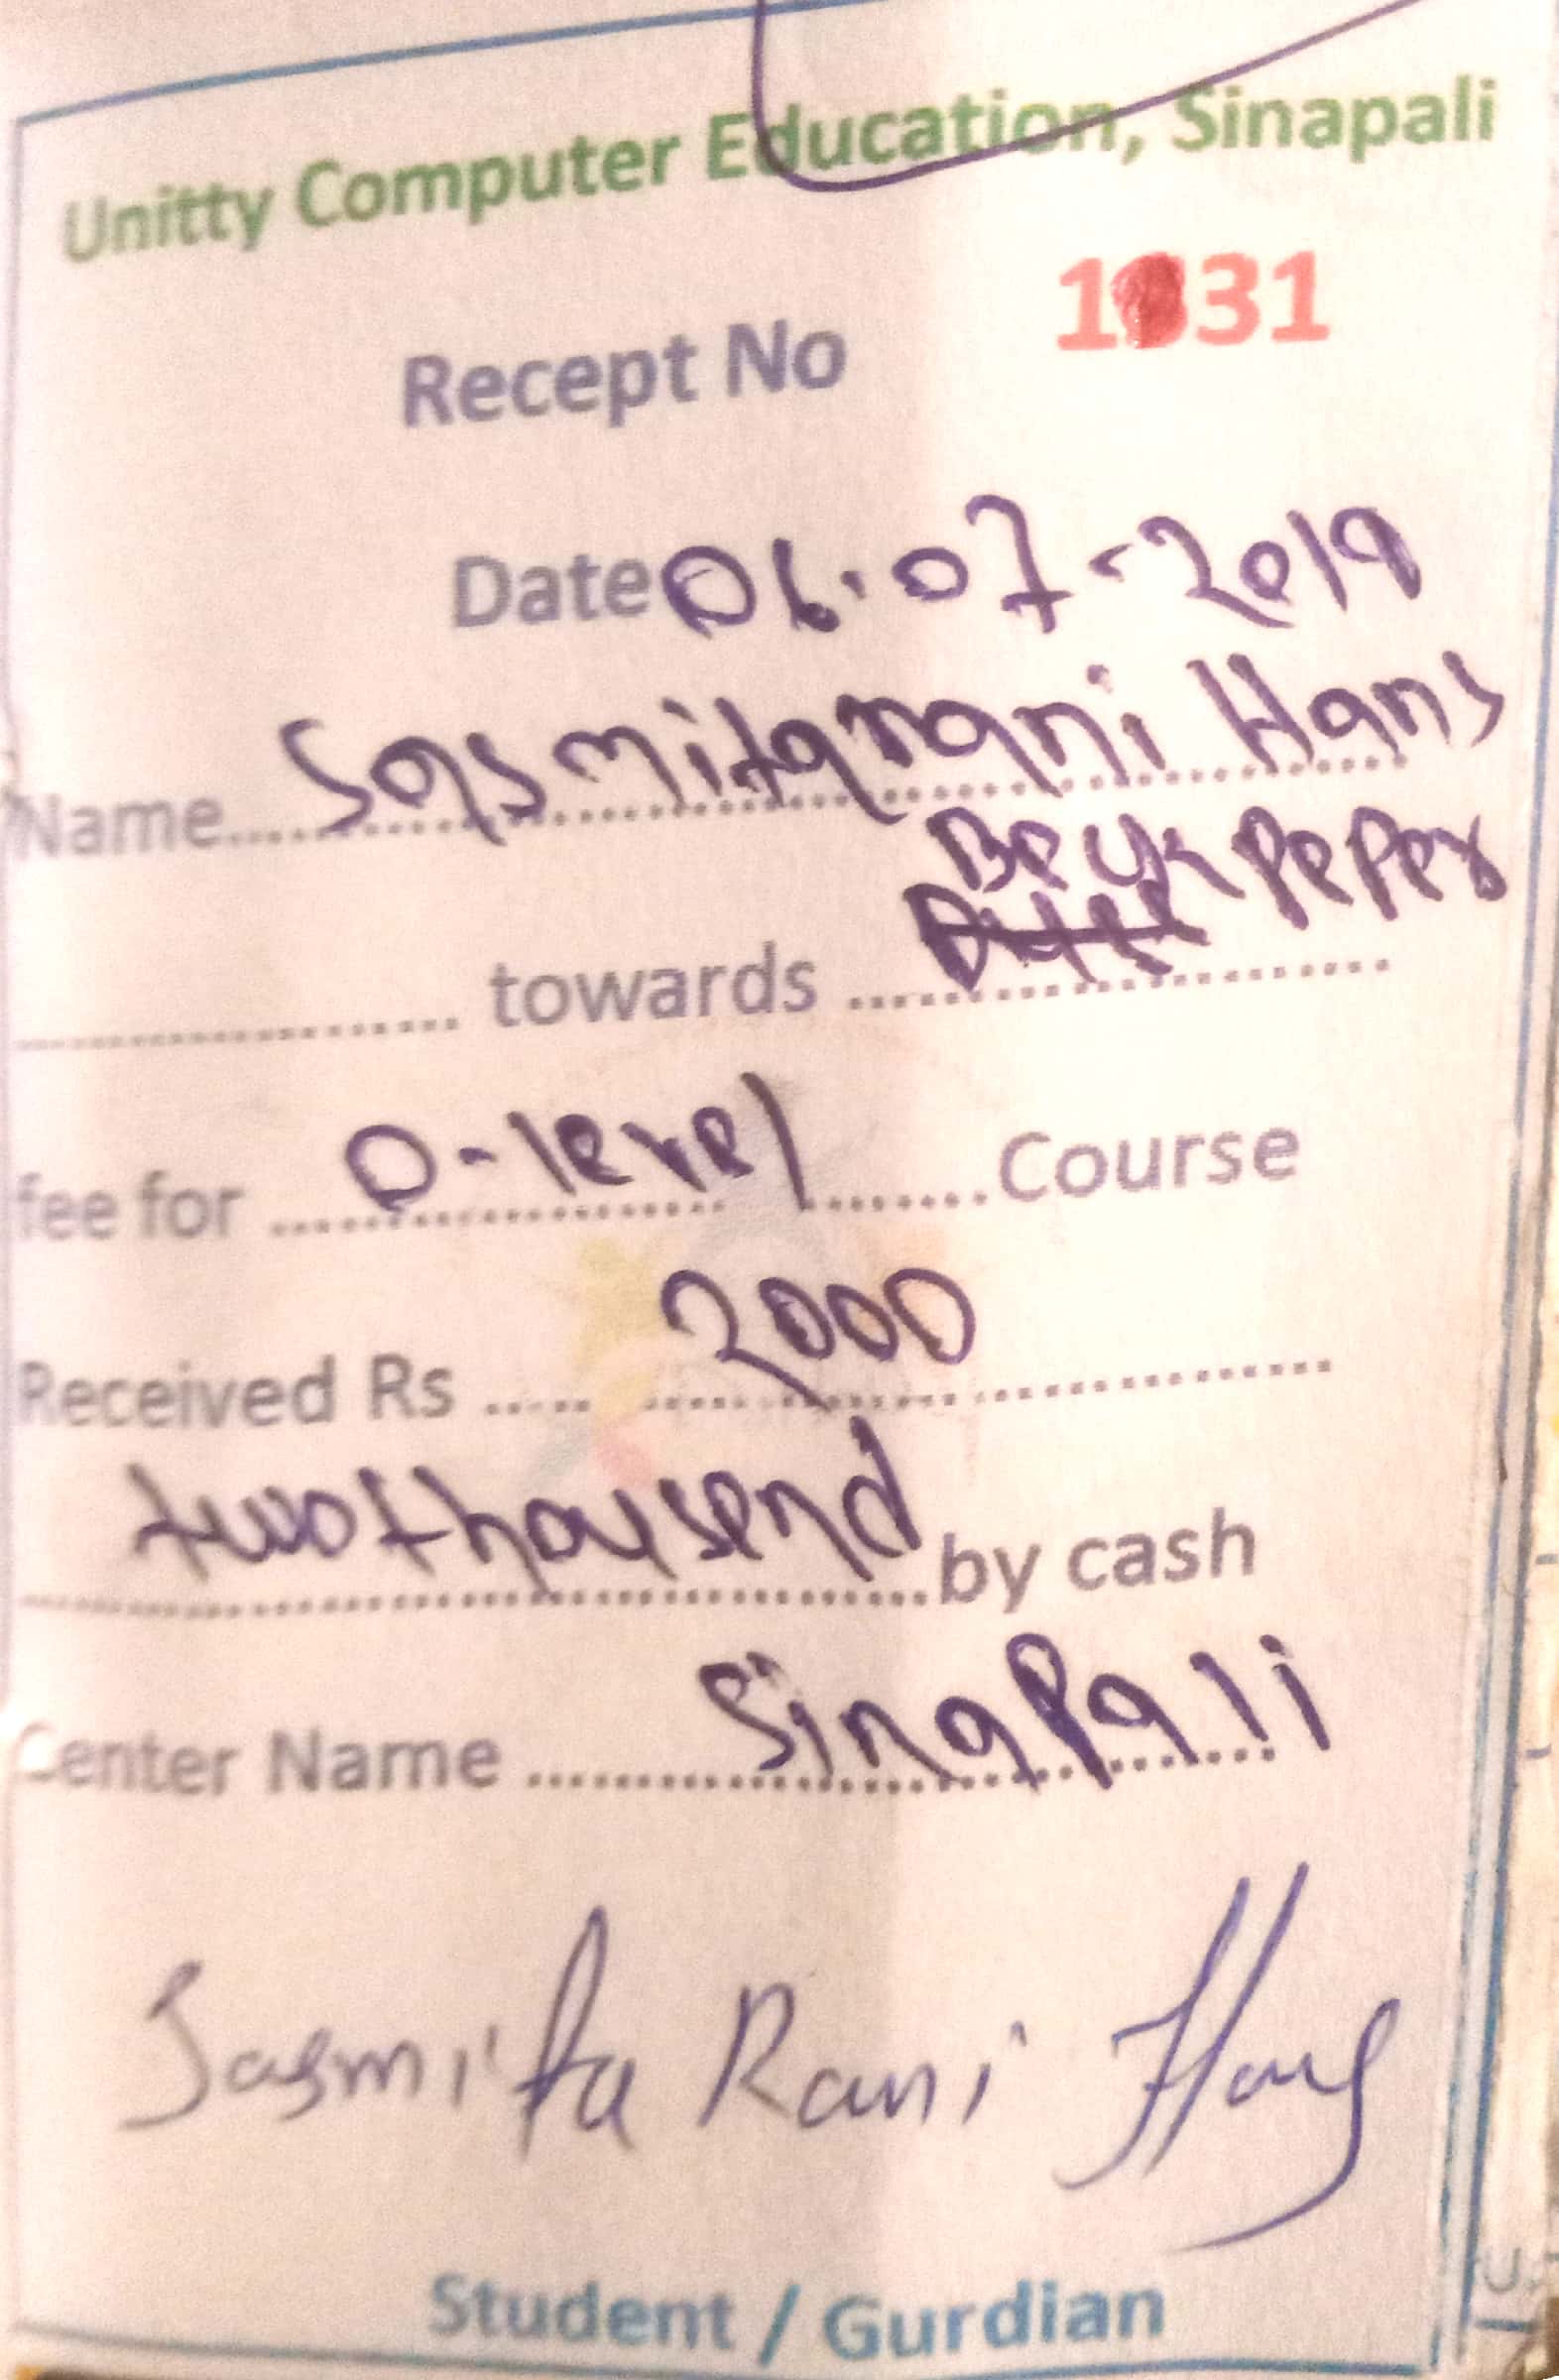 Unitty Computer Education, Sinapali
Recept No 1831
Date 06.07-2019
Name.... Sasmitarani Hans
Beck Peper
.................... towards ....................
fee for .... O-level ....... Course
Received Rs ..... 2000 ....................
two thousend by cash
Center Name .... Sinapali
Sasmita Rani Hans
Student / Gurdian